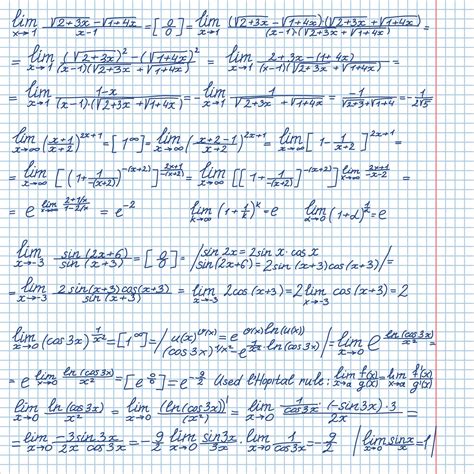 lim x→1 (√2+3x − √1+4x)/(x−1) = [0/0] = lim x→1 (√2+3x − √1+4x)(√2+3x + √1+4x)/((x−1)(√2+3x + √1+4x)) =
= lim x→1 ((√2+3x)² − (√1+4x)²)/((x−1)(√2+3x + √1+4x)) = lim x→1 (2+3x−(1+4x))/((x−1)(√2+3x + √1+4x)) =
= lim x→1 (1−x)/((x−1)(√2+3x + √1+4x)) = − lim x→1 1/(√2+3x + √1+4x) = −1/(√2+3 + √1+4) = −1/(2√5)
lim x→∞ ((x+1)/(x+2))^(2x+1) = [1^∞] = lim x→∞ ((x+2−1)/(x+2))^(2x+1) = lim x→∞ [1 − 1/(x+2)]^(2x+1) =
= lim x→∞ [(1 + 1/(−(x+2)))^(−(x+2))]^((2x+1)/(−(x+2))) = lim x→∞ [[1 + 1/(−(x+2))]^(−(x+2))]^(lim x→∞ (2x+1)/(−x−2)) =
= e^(lim x→∞ (2+1/x)/(−1−2/x)) = e^(−2) lim k→∞ (1 + 1/k)^k = e lim α→0 (1+α)^(1/α) = e
lim x→−3 sin(2x+6)/sin(x+3) = [0/0] = / sin 2x = 2 sin x · cos x sin(2x+6) = 2 sin(x+3) cos(x+3) / =
= lim x→−3 2 sin(x+3) cos(x+3)/sin(x+3) = lim x→−3 2 cos(x+3) = 2 lim x→−3 cos(x+3) = 2
lim x→0 (cos 3x)^(1/x²) = [1^∞] = / u(x)^(v(x)) = e^(v(x) ln(u(x))) (cos 3x)^(1/x²) = e^(1/x² ln(cos 3x)) / = lim x→0 e^(ln(cos 3x)/x²) =
= e^(lim x→0 ln(cos 3x)/x²) = [e^(0/0)] = e^(−9/2) Used L'Hopital rule: lim x→a f(x)/g(x) = lim x→a f'(x)/g'(x)
lim x→0 ln(cos 3x)/x² = lim x→0 (ln(cos 3x))'/(x²)' = lim x→0 (1/cos 3x · (−sin 3x) · 3)/2x =
= lim x→0 −3 sin 3x/(2x cos 3x) = −9/2 lim x→0 sin 3x/3x · lim x→0 1/cos 3x = −9/2 | lim x→0 sin x/x = 1 |